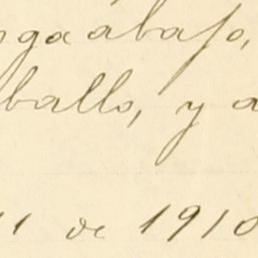 nga abajo,
ballo, y a
11 de 1910